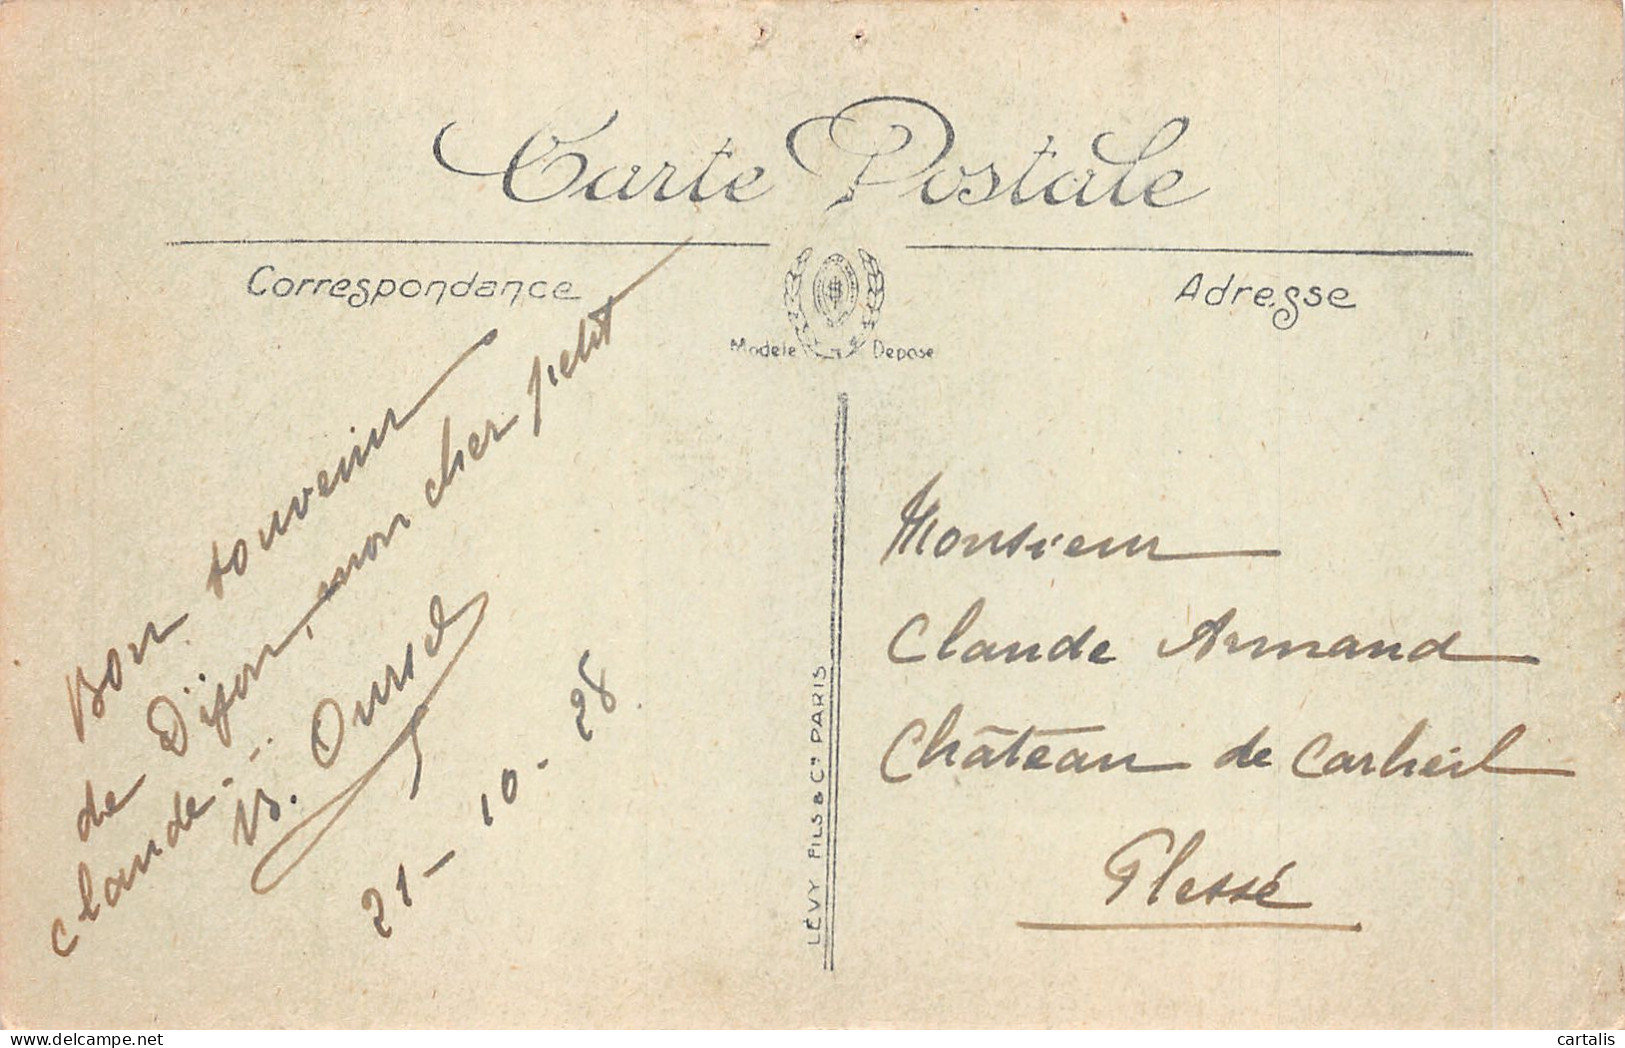 Carte Postale
Correspondance
Adresse
Modèle Déposé
Bon souvenir
de Dijon, mon cher petit
Claude.
21-10-28.
LÉVY FILS & Cie PARIS
Monsieur
Claude Armand
Château de Carheil
Plessé
delcampe.net
cartalis